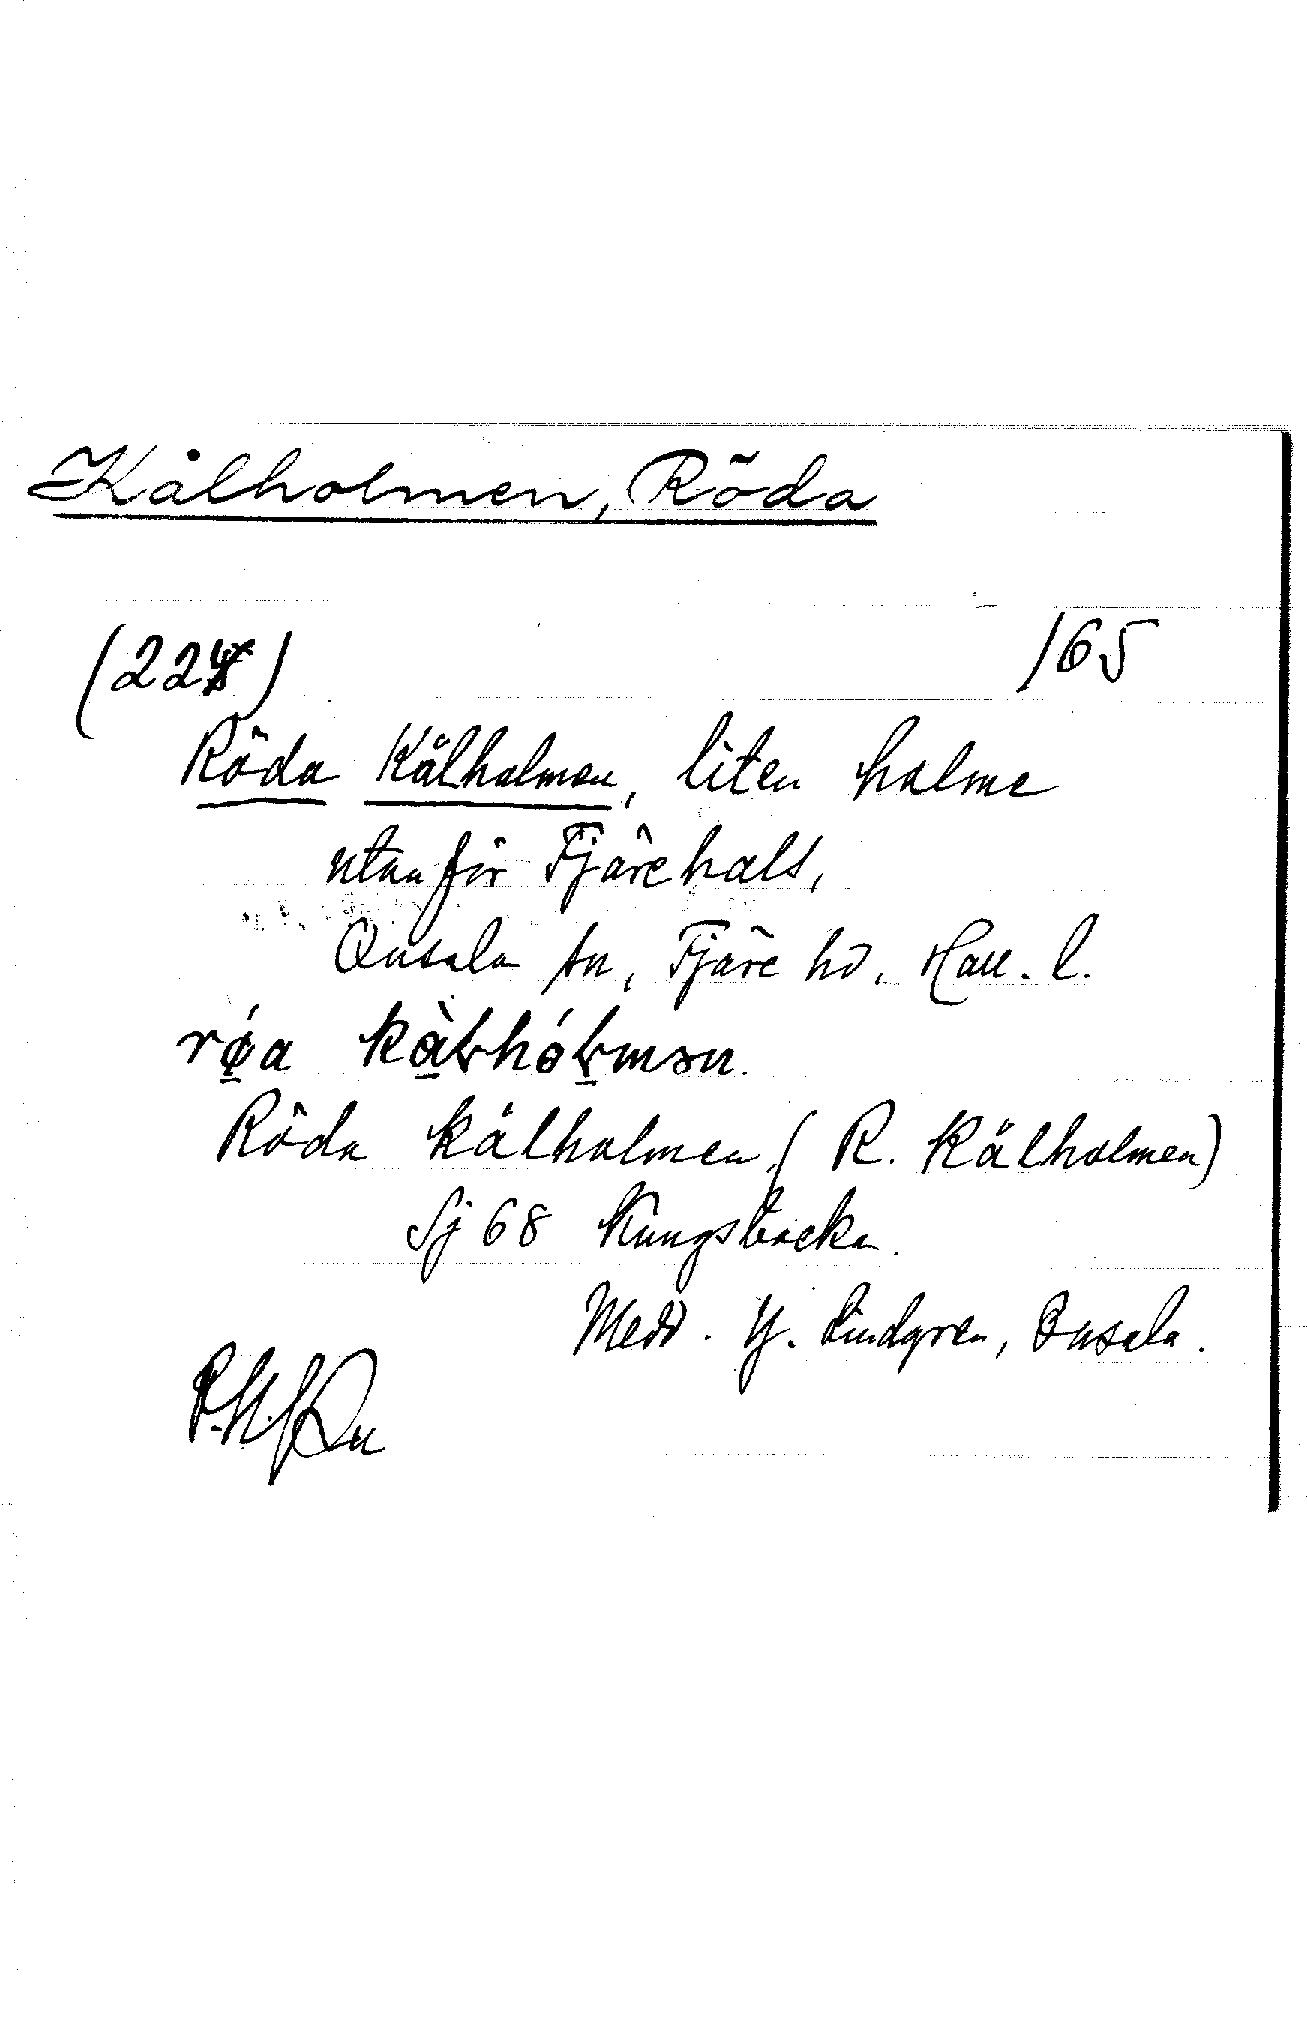 Kålholmen, Röda
(224) 165
Röda Kålholmen, liten holme
utanför Fjärehals,
Onsala sn, Fjäre hd. Hall. l.
Röda kålholmen (R. Kålholmen)
Sj 68 Kungsbacka.
Medd. Y. Lindgren, Onsala.